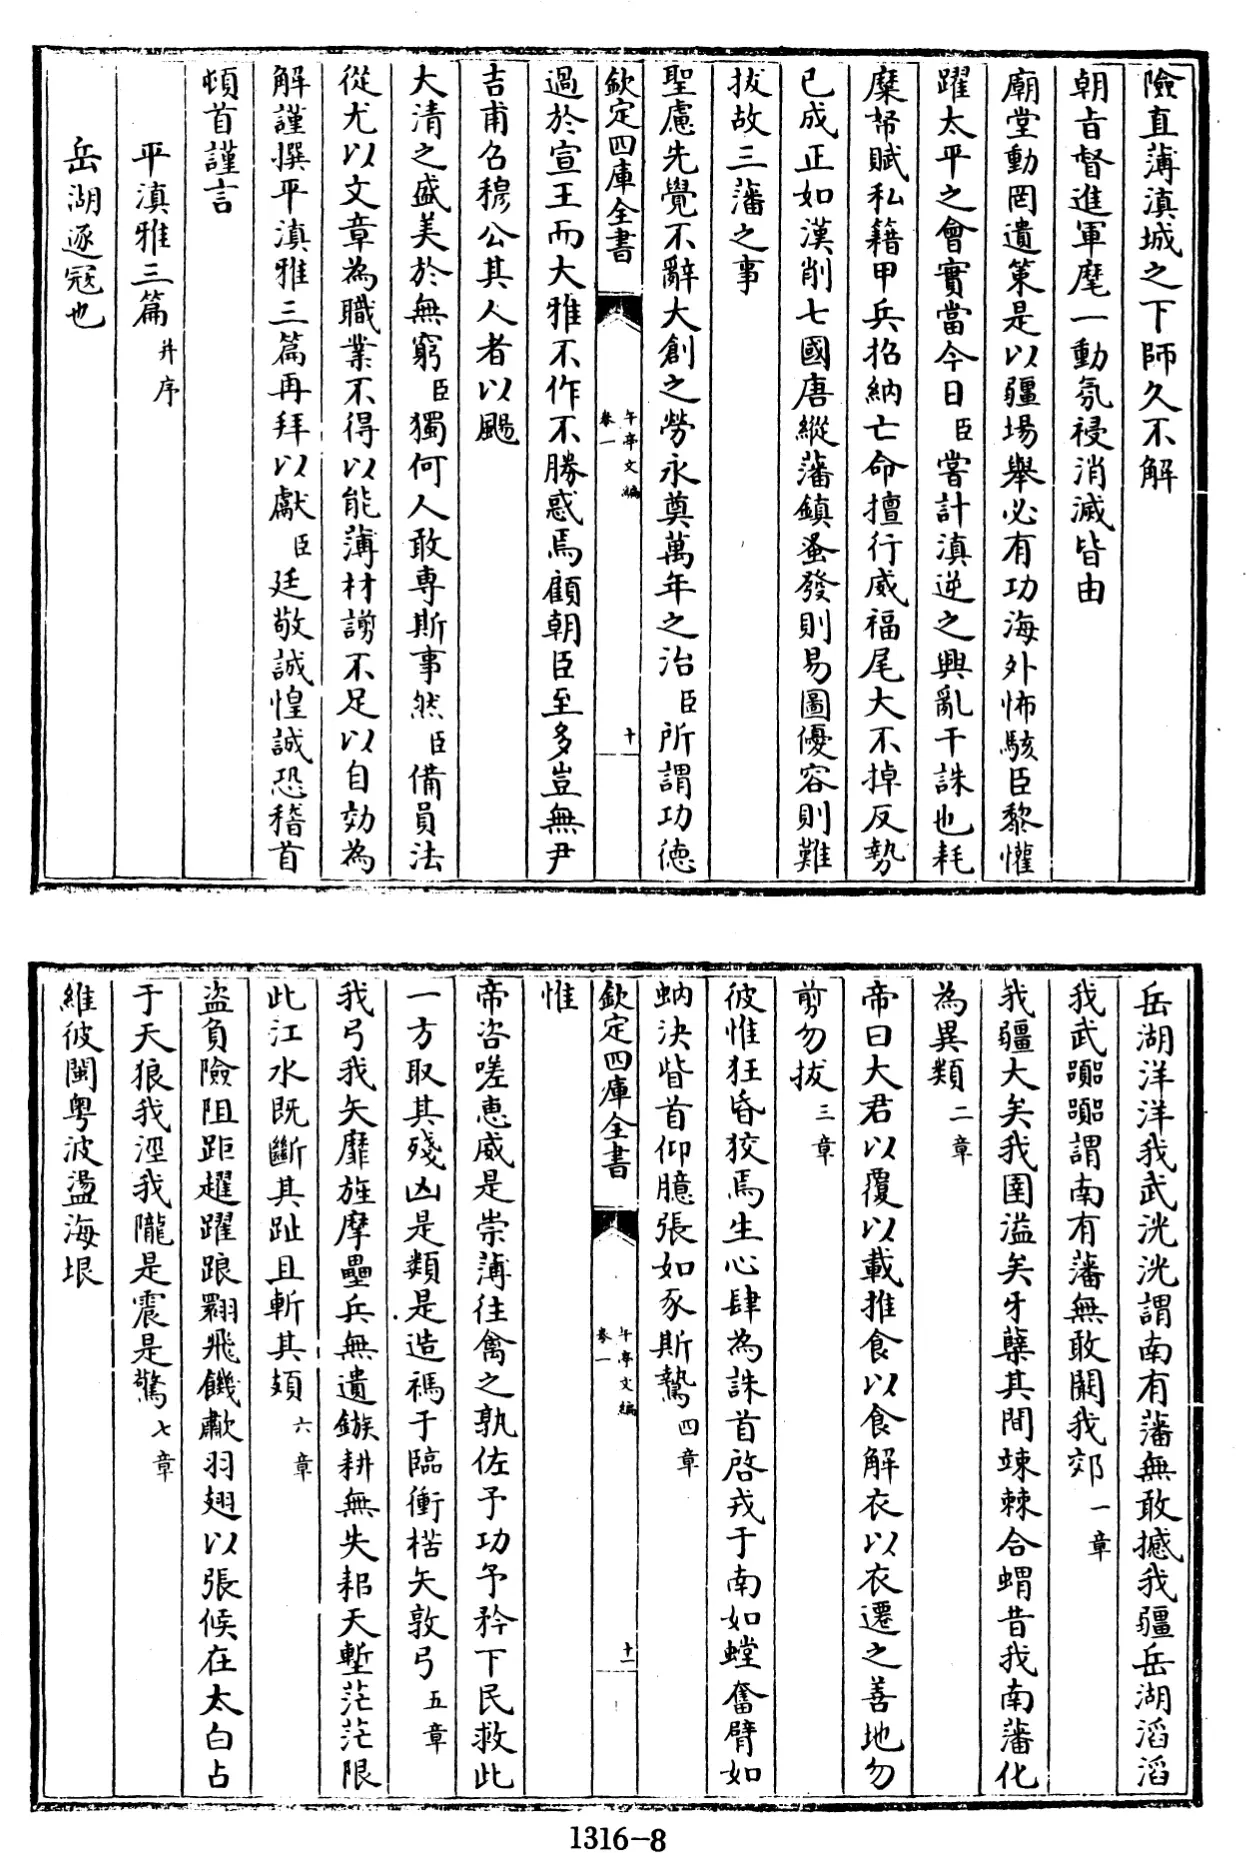 險直薄滇城之下師久不解
朝旨督進軍麾一動氛祲消滅皆由
廟堂動罔遺策是以疆場舉必有功海外怖駭臣黎懽
躍太平之會實當今日臣嘗計滇逆之興亂干誅也耗
糜帑賦私籍甲兵招納亡命擅行威福尾大不掉反勢
已成正如漢削七國唐縱藩鎮蚤發則易圖優容則難
拔故三藩之事
聖慮先覺不辭大創之勞永奠萬年之治臣所謂功德
欽定四庫全書
午亭文編
卷一
十
過於宣王而大雅不作不勝惑焉顧朝臣至多豈無尹
吉甫召穆公其人者以颺
大清之盛美於無窮臣獨何人敢專斯事然臣備員法
從尤以文章為職業不得以能薄材譾不足以自効為
解謹撰平滇雅三篇再拜以獻臣廷敬誠惶誠恐稽首
頓首謹言
平滇雅三篇并序
岳湖逐寇也
岳湖洋洋我武洸洸謂南有藩無敢撼我疆岳湖滔滔
我武嘂嘂謂南有藩無敢闞我郊一章
我疆大矣我圉溢矣牙蘖其間竦棘合蝟昔我南藩化
為異類二章
帝曰大君以覆以載推食以食解衣以衣遷之善地勿
剪勿拔三章
彼惟狂昏狡焉生心肆為誅首啓戎于南如螳奮臂如
蚋決眥首仰臆張如豕斯鷙四章
欽定四庫全書
午亭文編
卷一
十一
惟
帝咨嗟惠威是崇薄往禽之孰佐予功予矜下民救此
一方取其殘凶是類是造禡于臨衝楛矢敦弓五章
我弓我矢靡旌摩壘兵無遺鏃耕無失耜天塹茫茫限
此江水既斷其趾且斬其頞六章
盜負險阻距趯躍踉翾飛饑歗羽翅以張候在太白占
于天狼我涇我隴是震是驚七章
維彼閩粤波盪海垠
1316-8